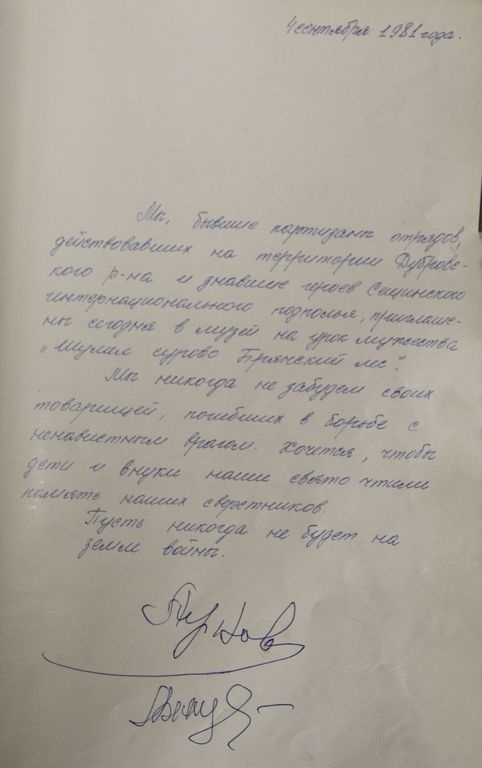 4 сентября 1981 года.
Мы, бывшие партизаны отрядов,
действовавших на территории Дубровс-
кого р-на и знавшие героев Сещинского
интернационального подполья, приглаше-
ны сегодня в музей на урок мужества
„Шумел сурово Брянский лес".
Мы никогда не забудем своих
товарищей, погибших в борьбе с
ненавистным врагом. Хочется, чтобы
дети и внуки наши свято чтили
память наших сверстников.
Пусть никогда не будет на
земле войны.